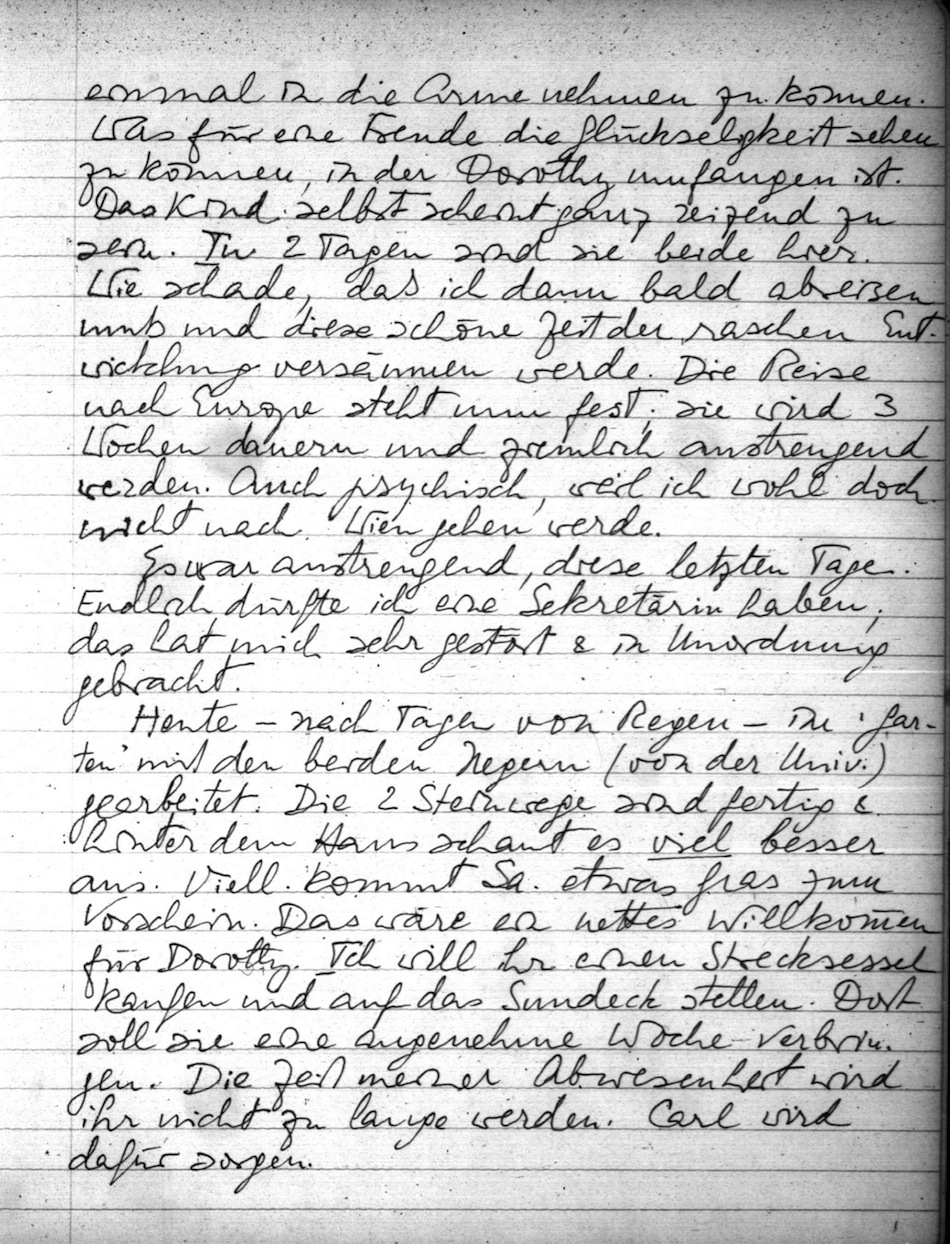 einmal in die Arme nehmen zu können.
Was für eine Freude die Glückseligkeit sehen
zu können, in der Dorothy umfangen ist.
Das Kind selbst scheint ganz reizend zu
sein. In 2 Tagen sind sie beide hier.
Wie schade, daß ich dann bald abreisen
muß und diese schöne Zeit der raschen Ent-
wicklung versäumen werde. Die Reise
nach Europa steht nun fest; sie wird 3
Wochen dauern und ziemlich anstrengend
werden. Auch psychisch, weil ich wohl doch
nicht nach Wien gehen werde.
Es war anstrengend, diese letzten Tage.
Endlich dürfte ich eine Sekretärin haben,
das hat mich sehr gestört & in Unordnung
gebracht.
Heute – nach Tagen von Regen – im 'Gar-
ten' mit den beiden Negern (von der Univ.)
gearbeitet. Die 2 Steinwege sind fertig &
hinter dem Haus schaut es viel besser
aus. Viell. kommt Sa. etwas Gras zum
Vorschein. Das wäre ein nettes Willkom̄en
für Dorothy. Ich will ihr einen Strecksessel
kaufen und auf das Sundeck stellen. Dort
soll sie eine angenehme Woche verbrin-
gen. Die Zeit meiner Abwesenheit wird
ihr nicht zu lange werden. Carl wird
dafür sorgen.